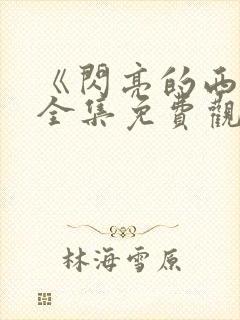 《閃亮的西
全集免費觀
林海雪原